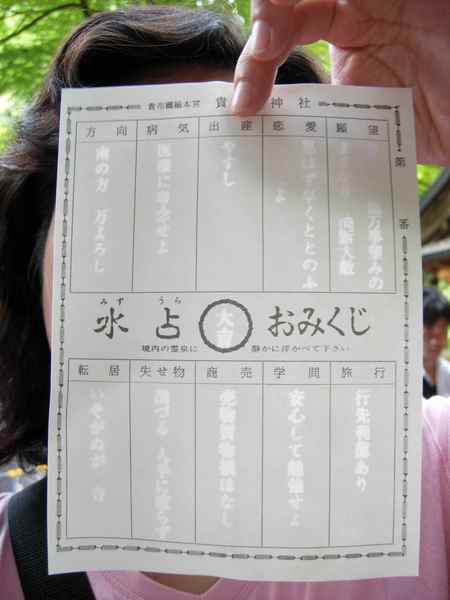 貴布禰総本宮 貴 神社
第 番
方向 病気 出産 恋愛 願望
万事望みの
ととのふ
やすし
医療に専念せよ
南の方 万よろし
みず うら
水占 大吉 おみくじ
境内の霊泉に 静かに浮かべて下さい
転居 失せ物 商売 学問 旅行
行先 あり
安心して勉強せよ
売物買物損はなし
出づる 人手に渡らず
いそがぬが 吉